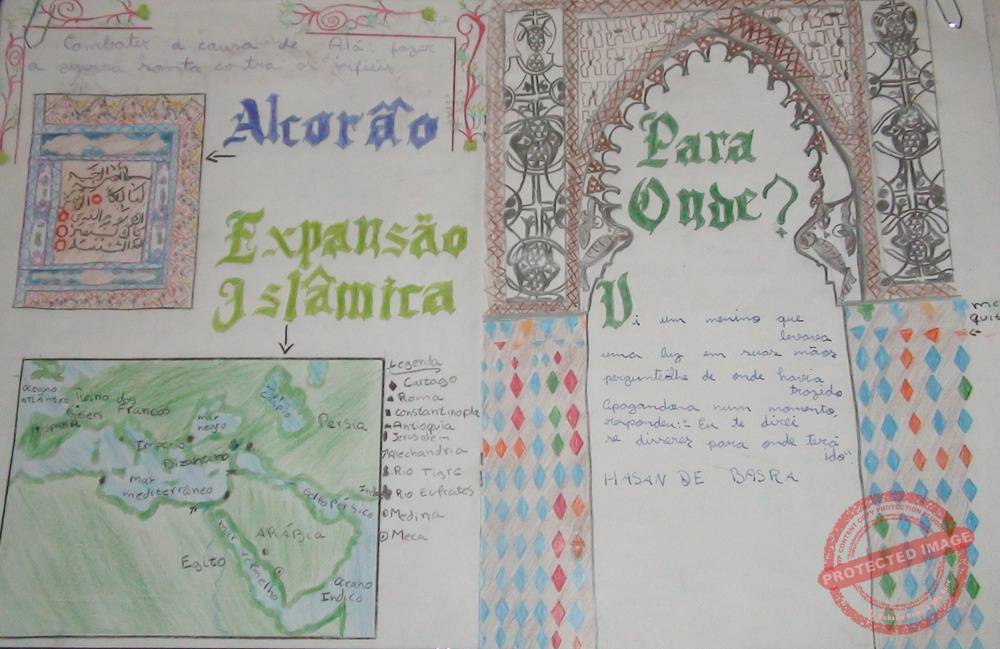 Combater a causa de Alá fazer
a guerra santa contra os infiéis
Alcorão
Expansão
Islâmica
Oceano
Atlântico
Reino dos
Francos
mar
negro
mar
Cáspio
Persia
Império
Bizantino
mar
mediterrâneo
Golfo Pérsico
ARÁBIA
Egito
mar vermelho
Oceano
Indico
Legenda
Cartago
Roma
Constantinopla
Antioquia
Jerusalém
Alechandria
Rio Tigre
Rio Eufrates
Medina
Meca
Para
Onde?
Vi um menino que
levava
uma luz em suas mãos
perguntei-lhe de onde havia
trazido
Apagando-a num momento,
respondeu:- Eu te direi
se disseres para onde terá
ido"
HASAN DE BASRA
PROTECTED IMAGE